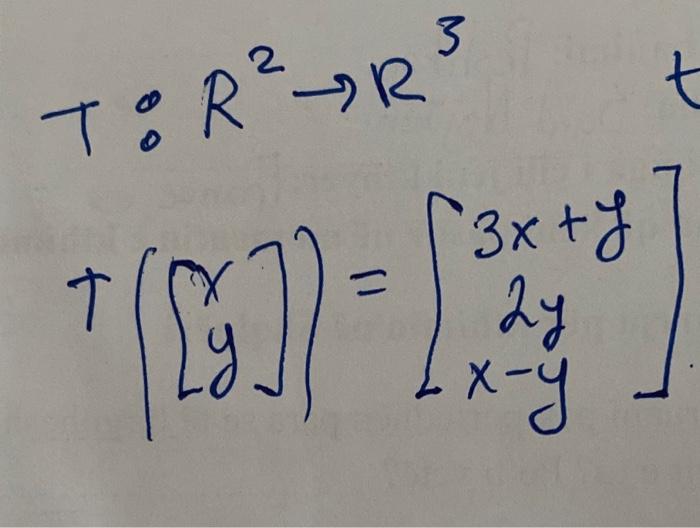 T: R² → R³ t
T([x y]) = [3x+y 2y x-y]